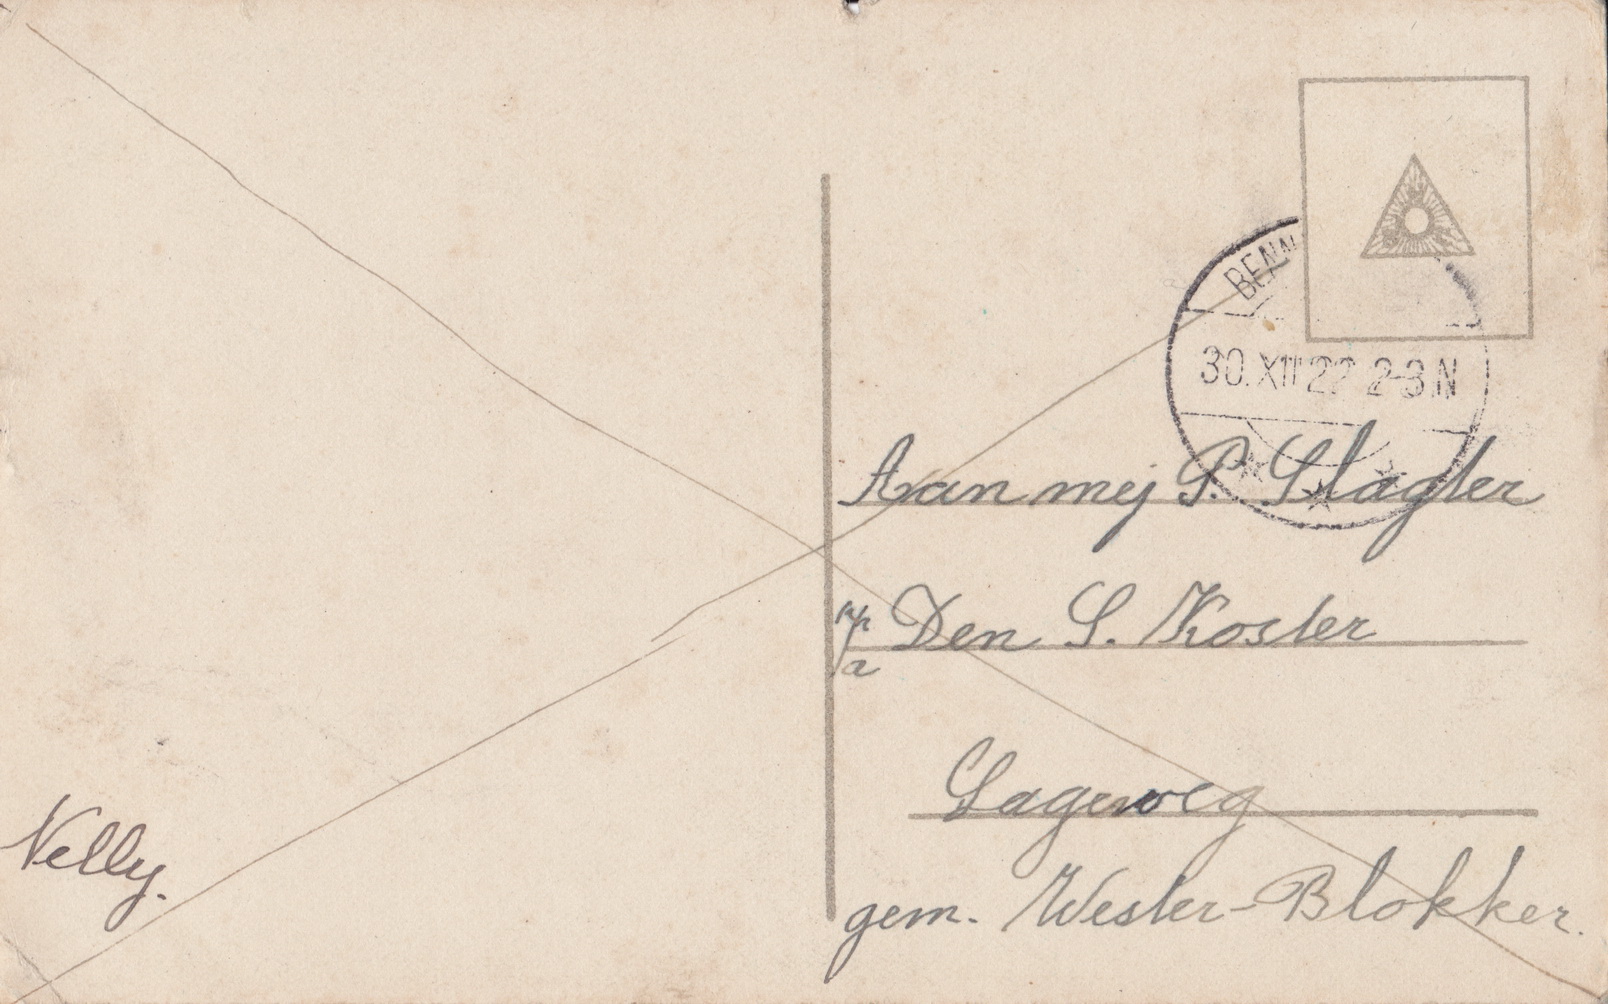 BENN
30.XII 22 2-3N
Aan mej P. Slagter
p/a Den S. Koster
Lageweg
gem. Wester-Blokker.
Nelly.